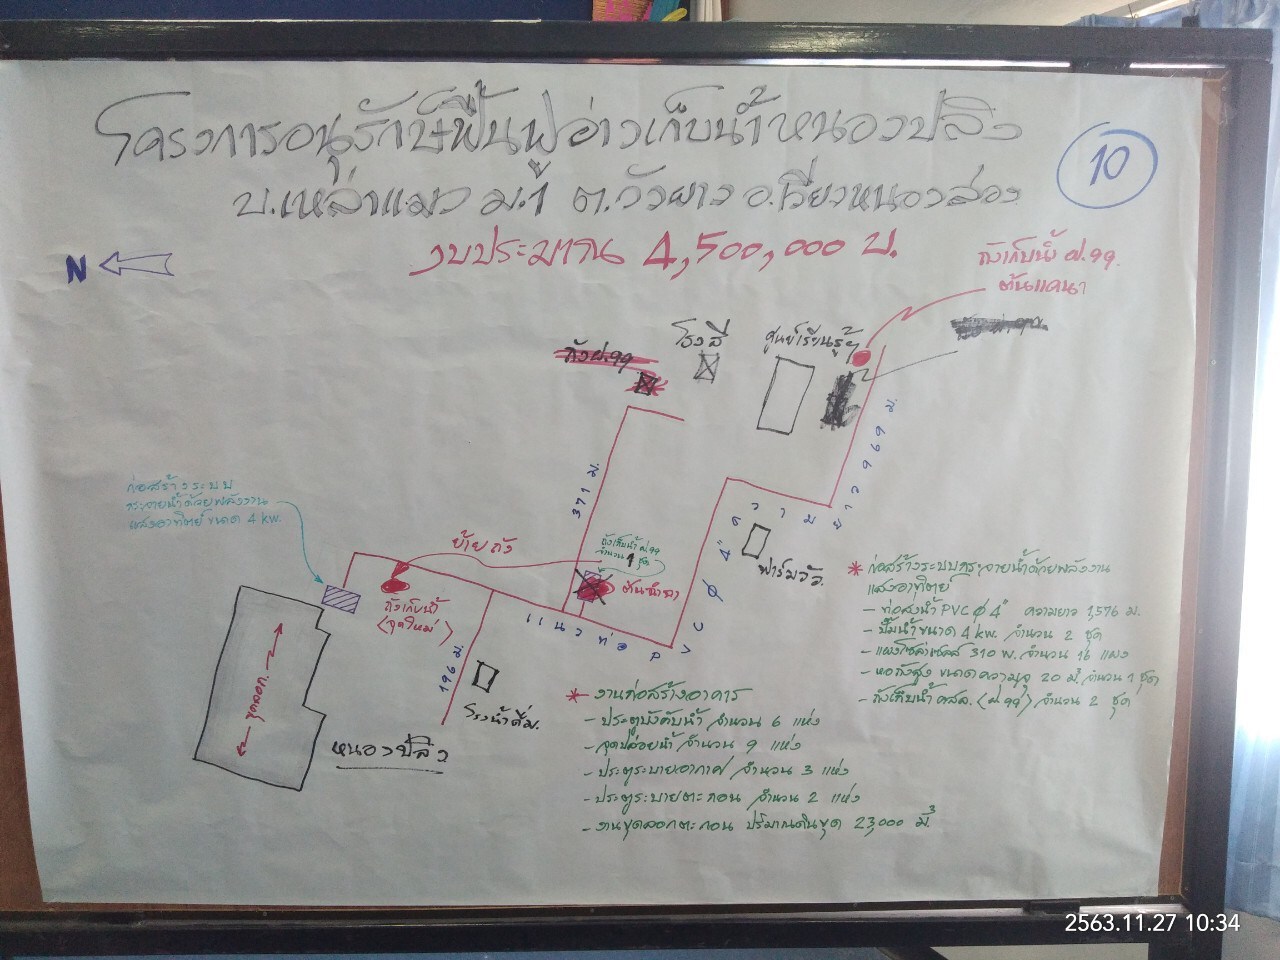 โครงการอนุรักษ์ฟื้นฟูอ่างเก็บน้ำหนองปลิง
บ.เหล่าแมว ม.1 ต.วังยาง อ.เวียงหนองล่อง
งบประมาณ 4,500,000 บ.
10
N
ถังเก็บน้ำ ฝ.99.
ต้นแดนา
ถังฝ.99
โรงสี
ศูนย์เรียนรู้ฯ
371 ม.
ยาว 969 ม.
ก่อสร้างระบบ
กระจายน้ำด้วยพลังงาน
แสงอาทิตย์ ขนาด 4 kw.
ย้ายถัง
ถังเก็บน้ำ ฝ.99
จำนวน 1 ชุด
ถังเก็บน้ำ
(จุดใหม่)
แนวท่อ PVC Ø 4" ความ
ฟาร์มวัว
196 ม.
โรงน้ำดื่ม.
ขุดลอก.
หนองปลิง
* ก่อสร้างระบบกระจายน้ำด้วยพลังงาน
แสงอาทิตย์
- ท่อส่งน้ำ PVC Ø 4" ความยาว 1,576 ม.
- ปั๊มน้ำขนาด 4 kw. จำนวน 2 ชุด
- แผงโซล่าเซลล์ 310 W. จำนวน 16 แผง
- หอถังสูง ขนาดความจุ 20 ม³ จำนวน 1 ชุด
- ถังเก็บน้ำ คสล. (ฝ 99) จำนวน 2 ชุด
* งานก่อสร้างอาคาร
- ประตูบังคับน้ำ จำนวน 6 แห่ง
- จุดปล่อยน้ำ จำนวน 9 แห่ง
- ประตูระบายอากาศ จำนวน 3 แห่ง
- ประตูระบายตะกอน จำนวน 2 แห่ง
- งานขุดลอกตะกอน ปริมาณดินขุด 23,000 ม³
2563.11.27 10:34